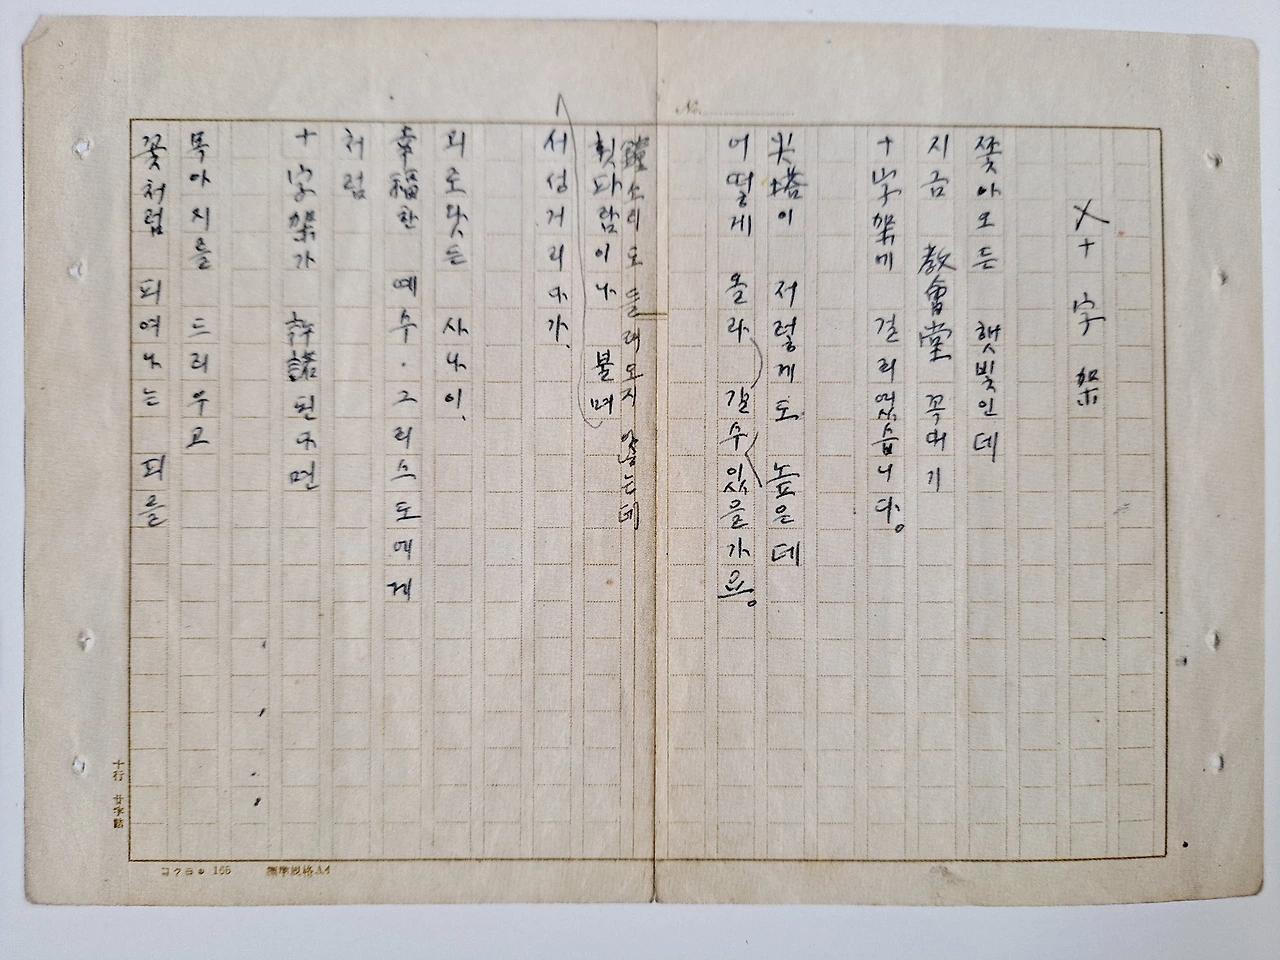 No.
十字架
쫓아오든 햇빛인데
지금 敎會堂 꼭대기
十字架에 걸리였습니다。
尖塔이 저렇게도 높은데
어떻게 올라갈수 있을가요。
鐘소리도 들려오지 않는데
휫파람이나 불며
서성거리다가、
괴로왓든 사나이、
幸福한 예수·그리스도에게
처럼
十字架가 許諾된다면
목아지를 드리우고
꽃처럼 피여나는 피를
十行 廿字詰
コクヨ 165 標準規格A4